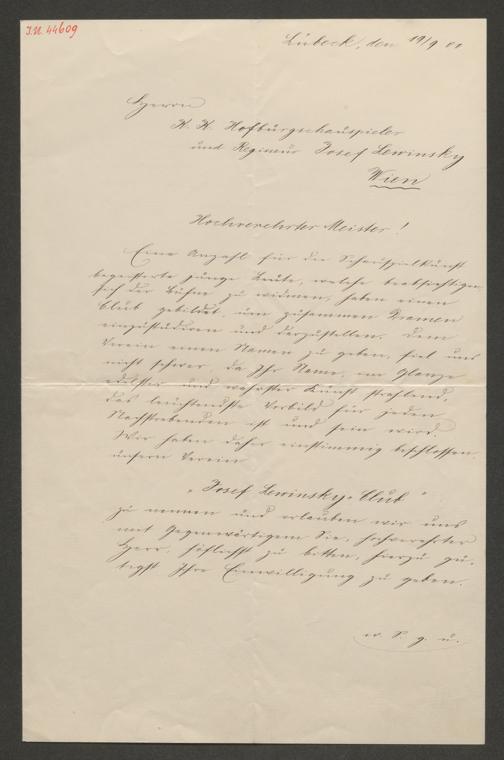 I.N. 44609
Lübeck, den 19/9 81
Herrn
K. K. Hofburgschauspieler
und Regisseur Josef Lewinsky
Wien
Hochverehrter Meister!
Eine Anzahl für die Schauspielkunst
begeisterte junge Leute, welche beabsichtigen
sich der Bühne zu widmen, haben einen
Club gebildet, um zusammen Dramen
einzustudiren und darzustellen. Dem
Verein einen Namen zu geben, fiel uns
nicht schwer, da Ihr Name, im Glanze
edelster und wahrster Kunst strahlend,
das leuchtendste Vorbild für jeden
Nachstrebenden ist und sein wird.
Wir haben daher einstimmig beschlossen,
unsern Verein
"Josef Lewinsky-Club"
zu nennen und erlauben wir uns
mit Gegenwärtigem Sie, hochverehrter
Herr, höflichst zu bitten, hierzu gü-
tigst Ihre Einwilligung zu geben.
w. S. g. u.